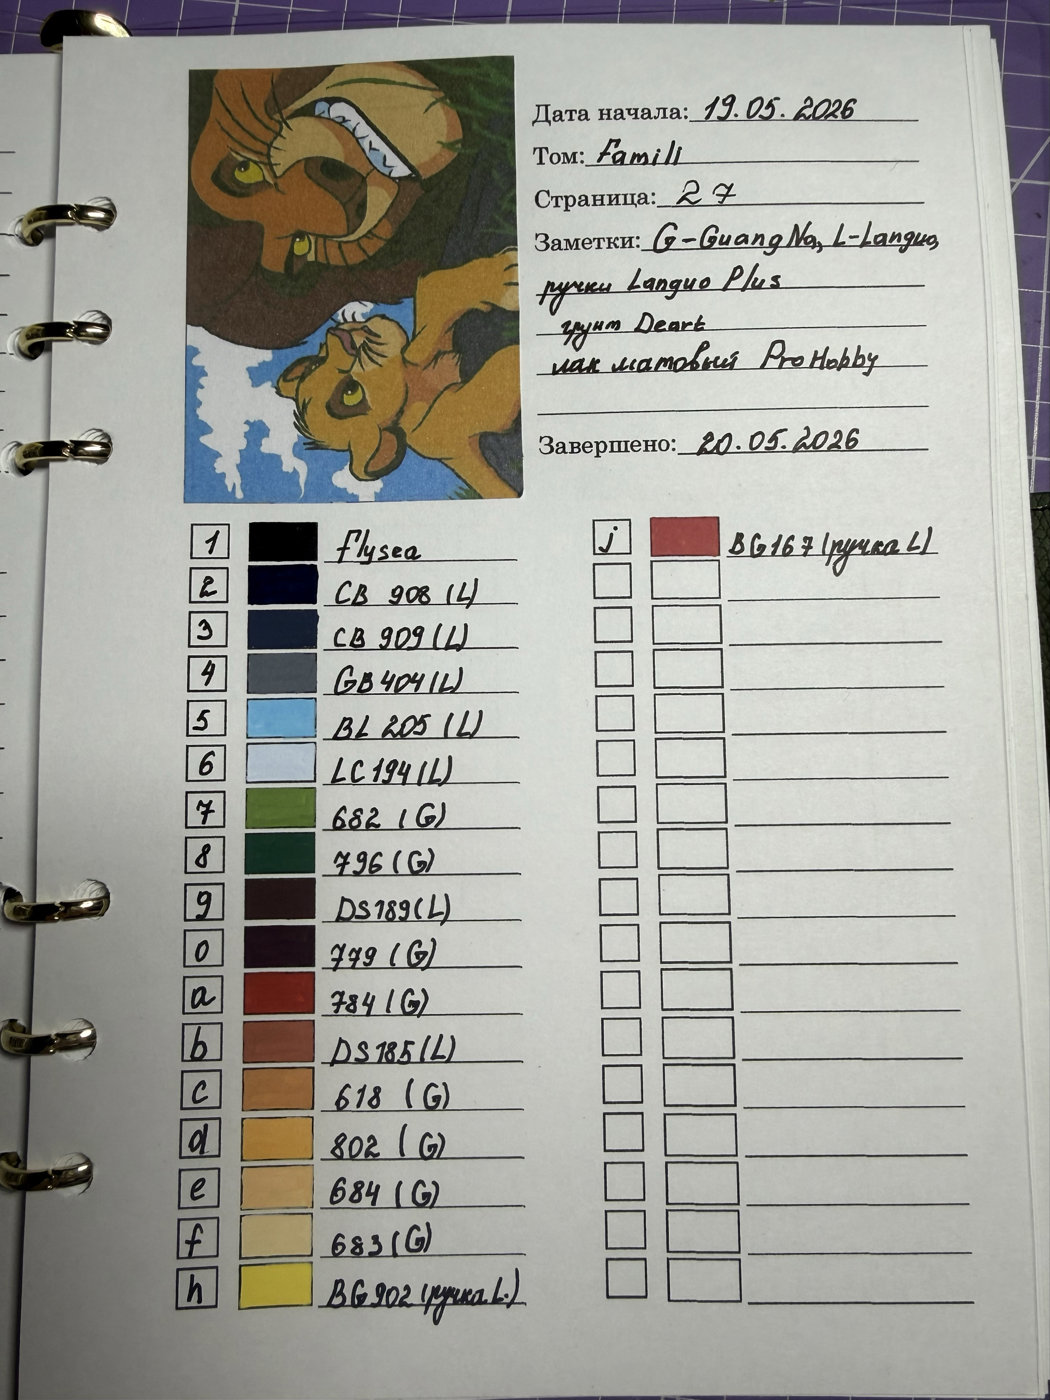 Дата начала: 19.05.2026
Том: Famili
Страница: 27
Заметки: G-GuangNa, L-Languo,
ручки Languo Plus
грунт Deart
лак матовый ProHobby
Завершено: 20.05.2026
1 flysea
2 CB 908 (L)
3 CB 909 (L)
4 GB404(L)
5 BL 205 (L)
6 LC194(L)
7 682 (G)
8 796 (G)
9 DS189(L)
0 779 (G)
a 784 (G)
b DS185(L)
c 618 (G)
d 802 (G)
e 684 (G)
f 683(G)
h BG902 (ручка L.)
j BG167 (ручка L)